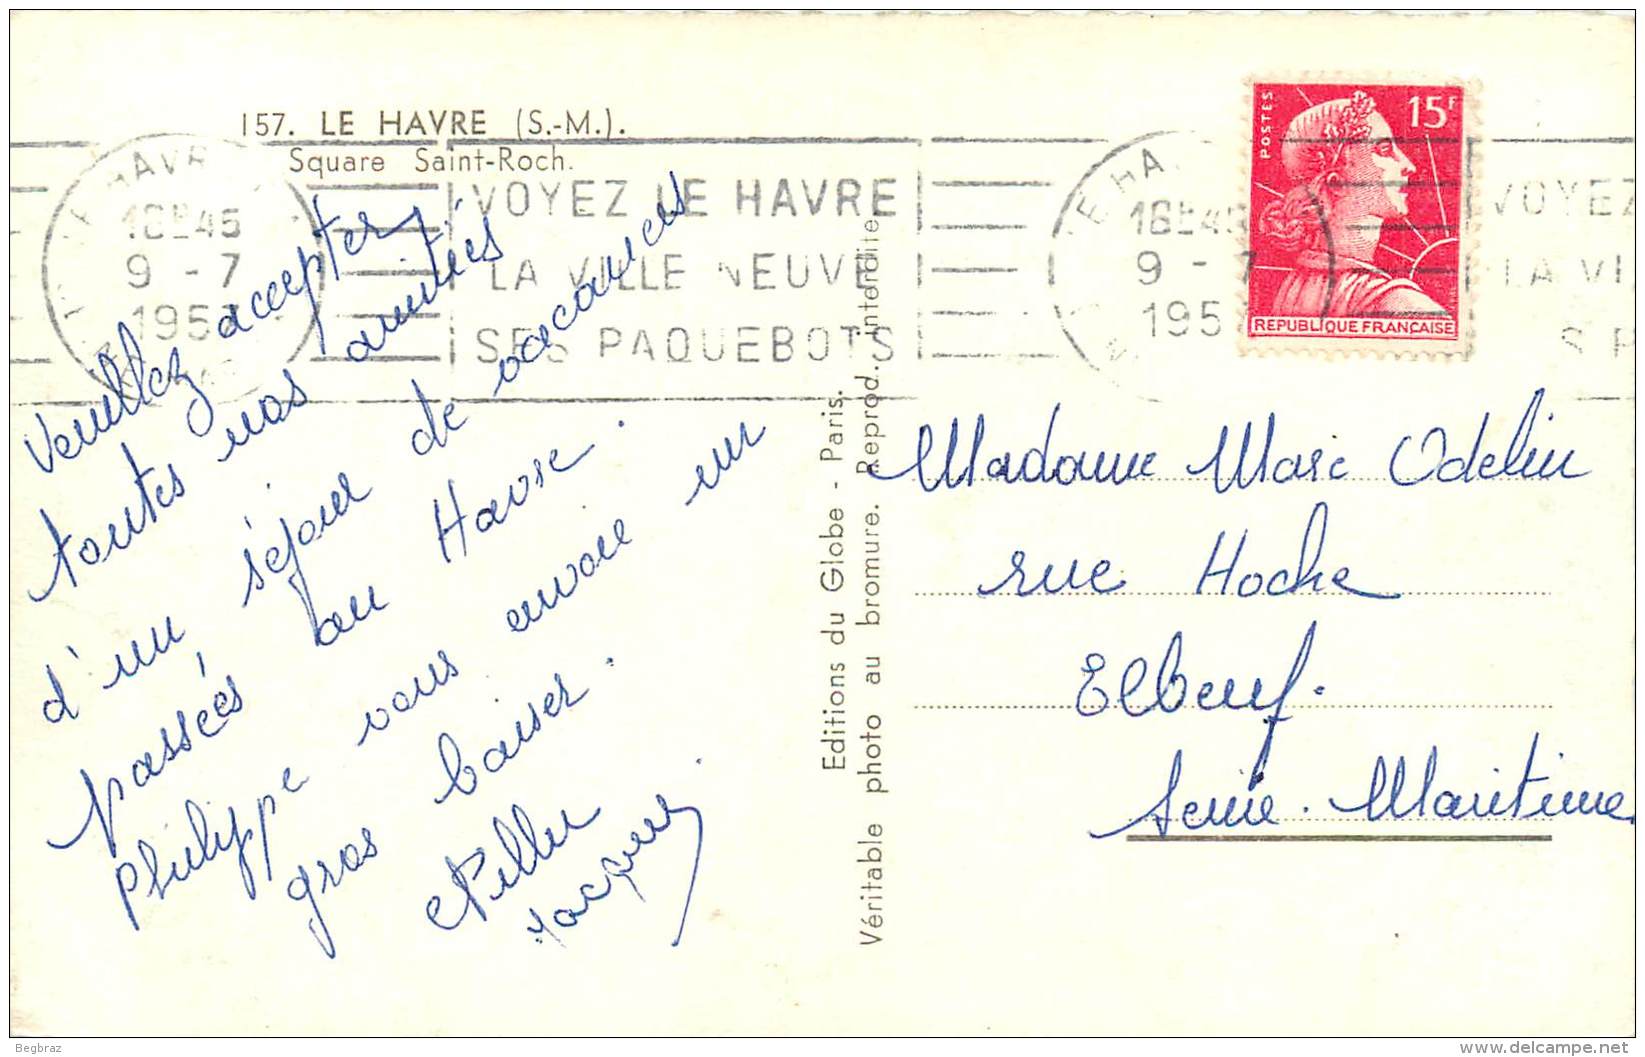 157. LE HAVRE (S.-M.).
Square Saint-Roch.
VOYEZ LE HAVRE
LA VILLE NEUVE
SES PAQUEBOTS
9 - 7
POSTES
15F
REPUBLIQUE FRANÇAISE
9 - 7
195
VOYEZ
LA VI
S P
Veuillez accepter
toutes nos amitiés
d'un séjour de vacances
passées au Havre.
Philippe vous envoie un
gros baiser.
Jacques
Editions du Globe - Paris.
Véritable photo au bromure. Reprod. interdite
Madame Marc Odelin
rue Hoche
Elbeuf.
Seine-Maritime
Begbraz
delcampe.net